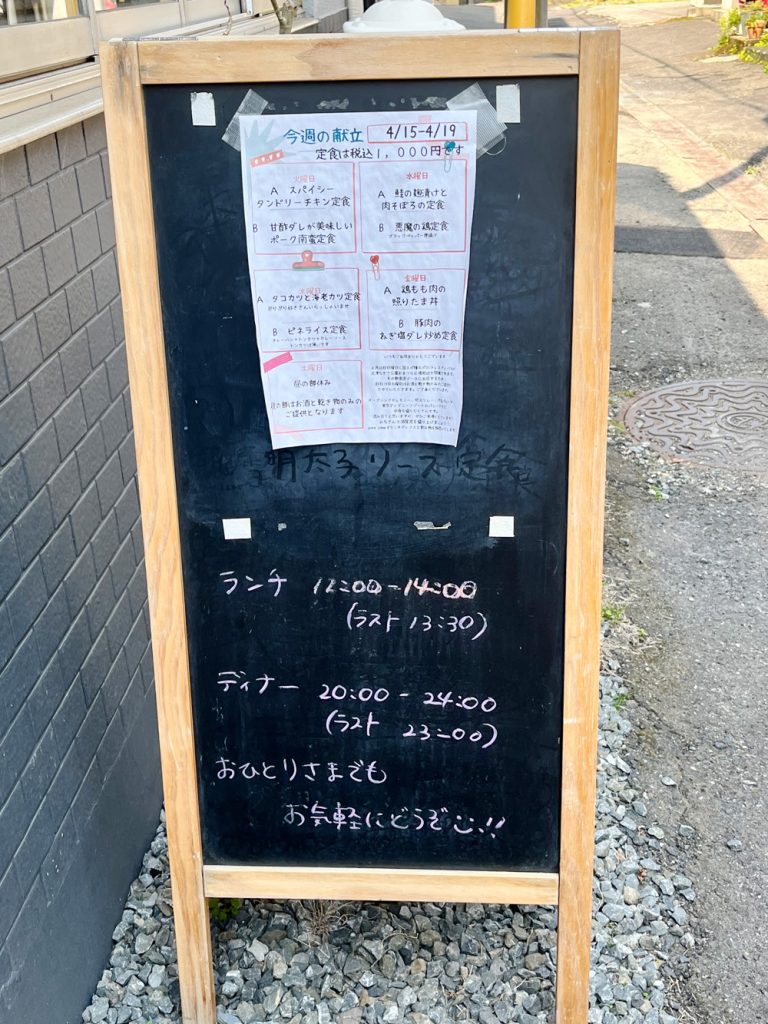 今週の献立 4/15-4/19
定食は税込1,000円です
火曜日
A スパイシー
タンドリーチキン定食
B 甘酢ダレが美味しい
ポーク南蛮定食
水曜日
A 鮭の麹漬けと
肉そぼろの定食
B 悪魔の鶏定食
木曜日
A タコカツと海老カツ定食
B ピネライス定食
金曜日
A 鶏もも肉の
照りたま丼
B 豚肉の
ねぎ塩ダレ炒め定食
土曜日
昼の部休み
夜の部はお酒と乾き物のみの
ご提供となります
いつもご利用ありがとうございます
明太子 定食
ランチ 12:00-14:00
(ラスト 13:30)
ディナー 20:00-24:00
(ラスト 23:00)
おひとりさまでも
お気軽にどうぞ!!